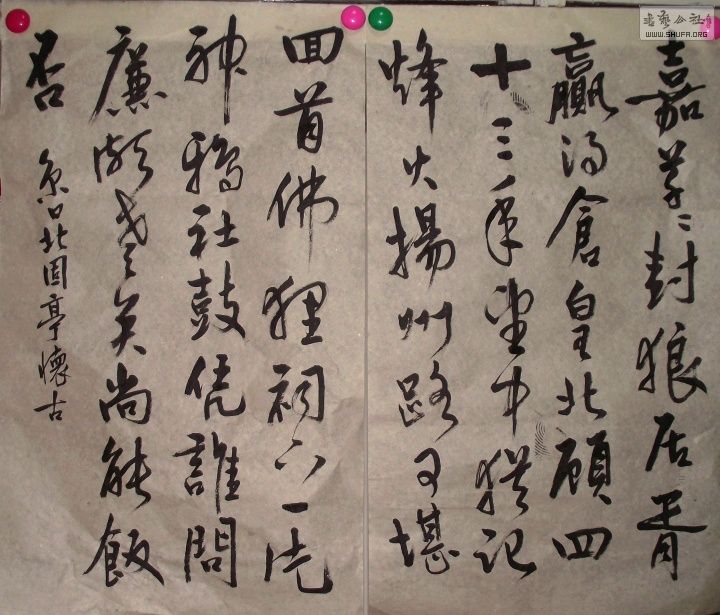 嘉草々封狼居胥
贏得倉皇北顧四
十三年望中猶記
烽火揚州路可堪
回首佛狸祠下一片
神鴉社鼓凭誰問
廉頗老矣尚能飯
否
京口北固亭懷古
書藝公社
WWW.SHUFA.ORG